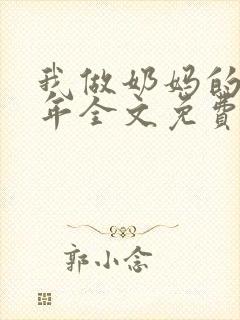 我做奶妈的
年全文免费
郭小念